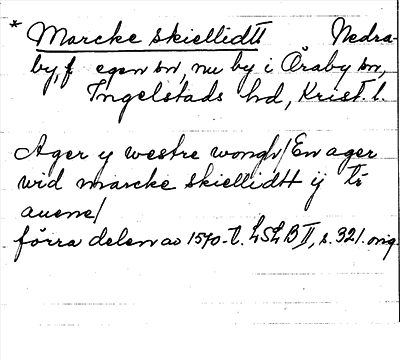 * Marcke skiellidtt Nedra-
by, f egen sn, nu by i Öraby sn,
Ingelstads hd, Krist. l.
Ager y westre wongh/En ager
wid marcke skiellidtt ij
auene/
förra delen av 1570-t. LSLB II, s. 321. orig.